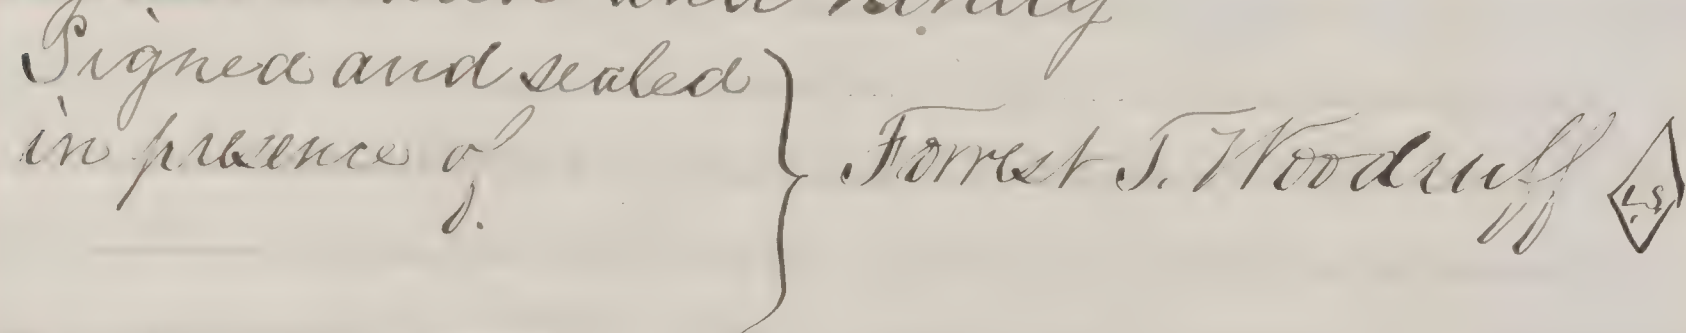 and ninety
Signed and sealed
in presence of.
Forrest T. Woodruff L.S.